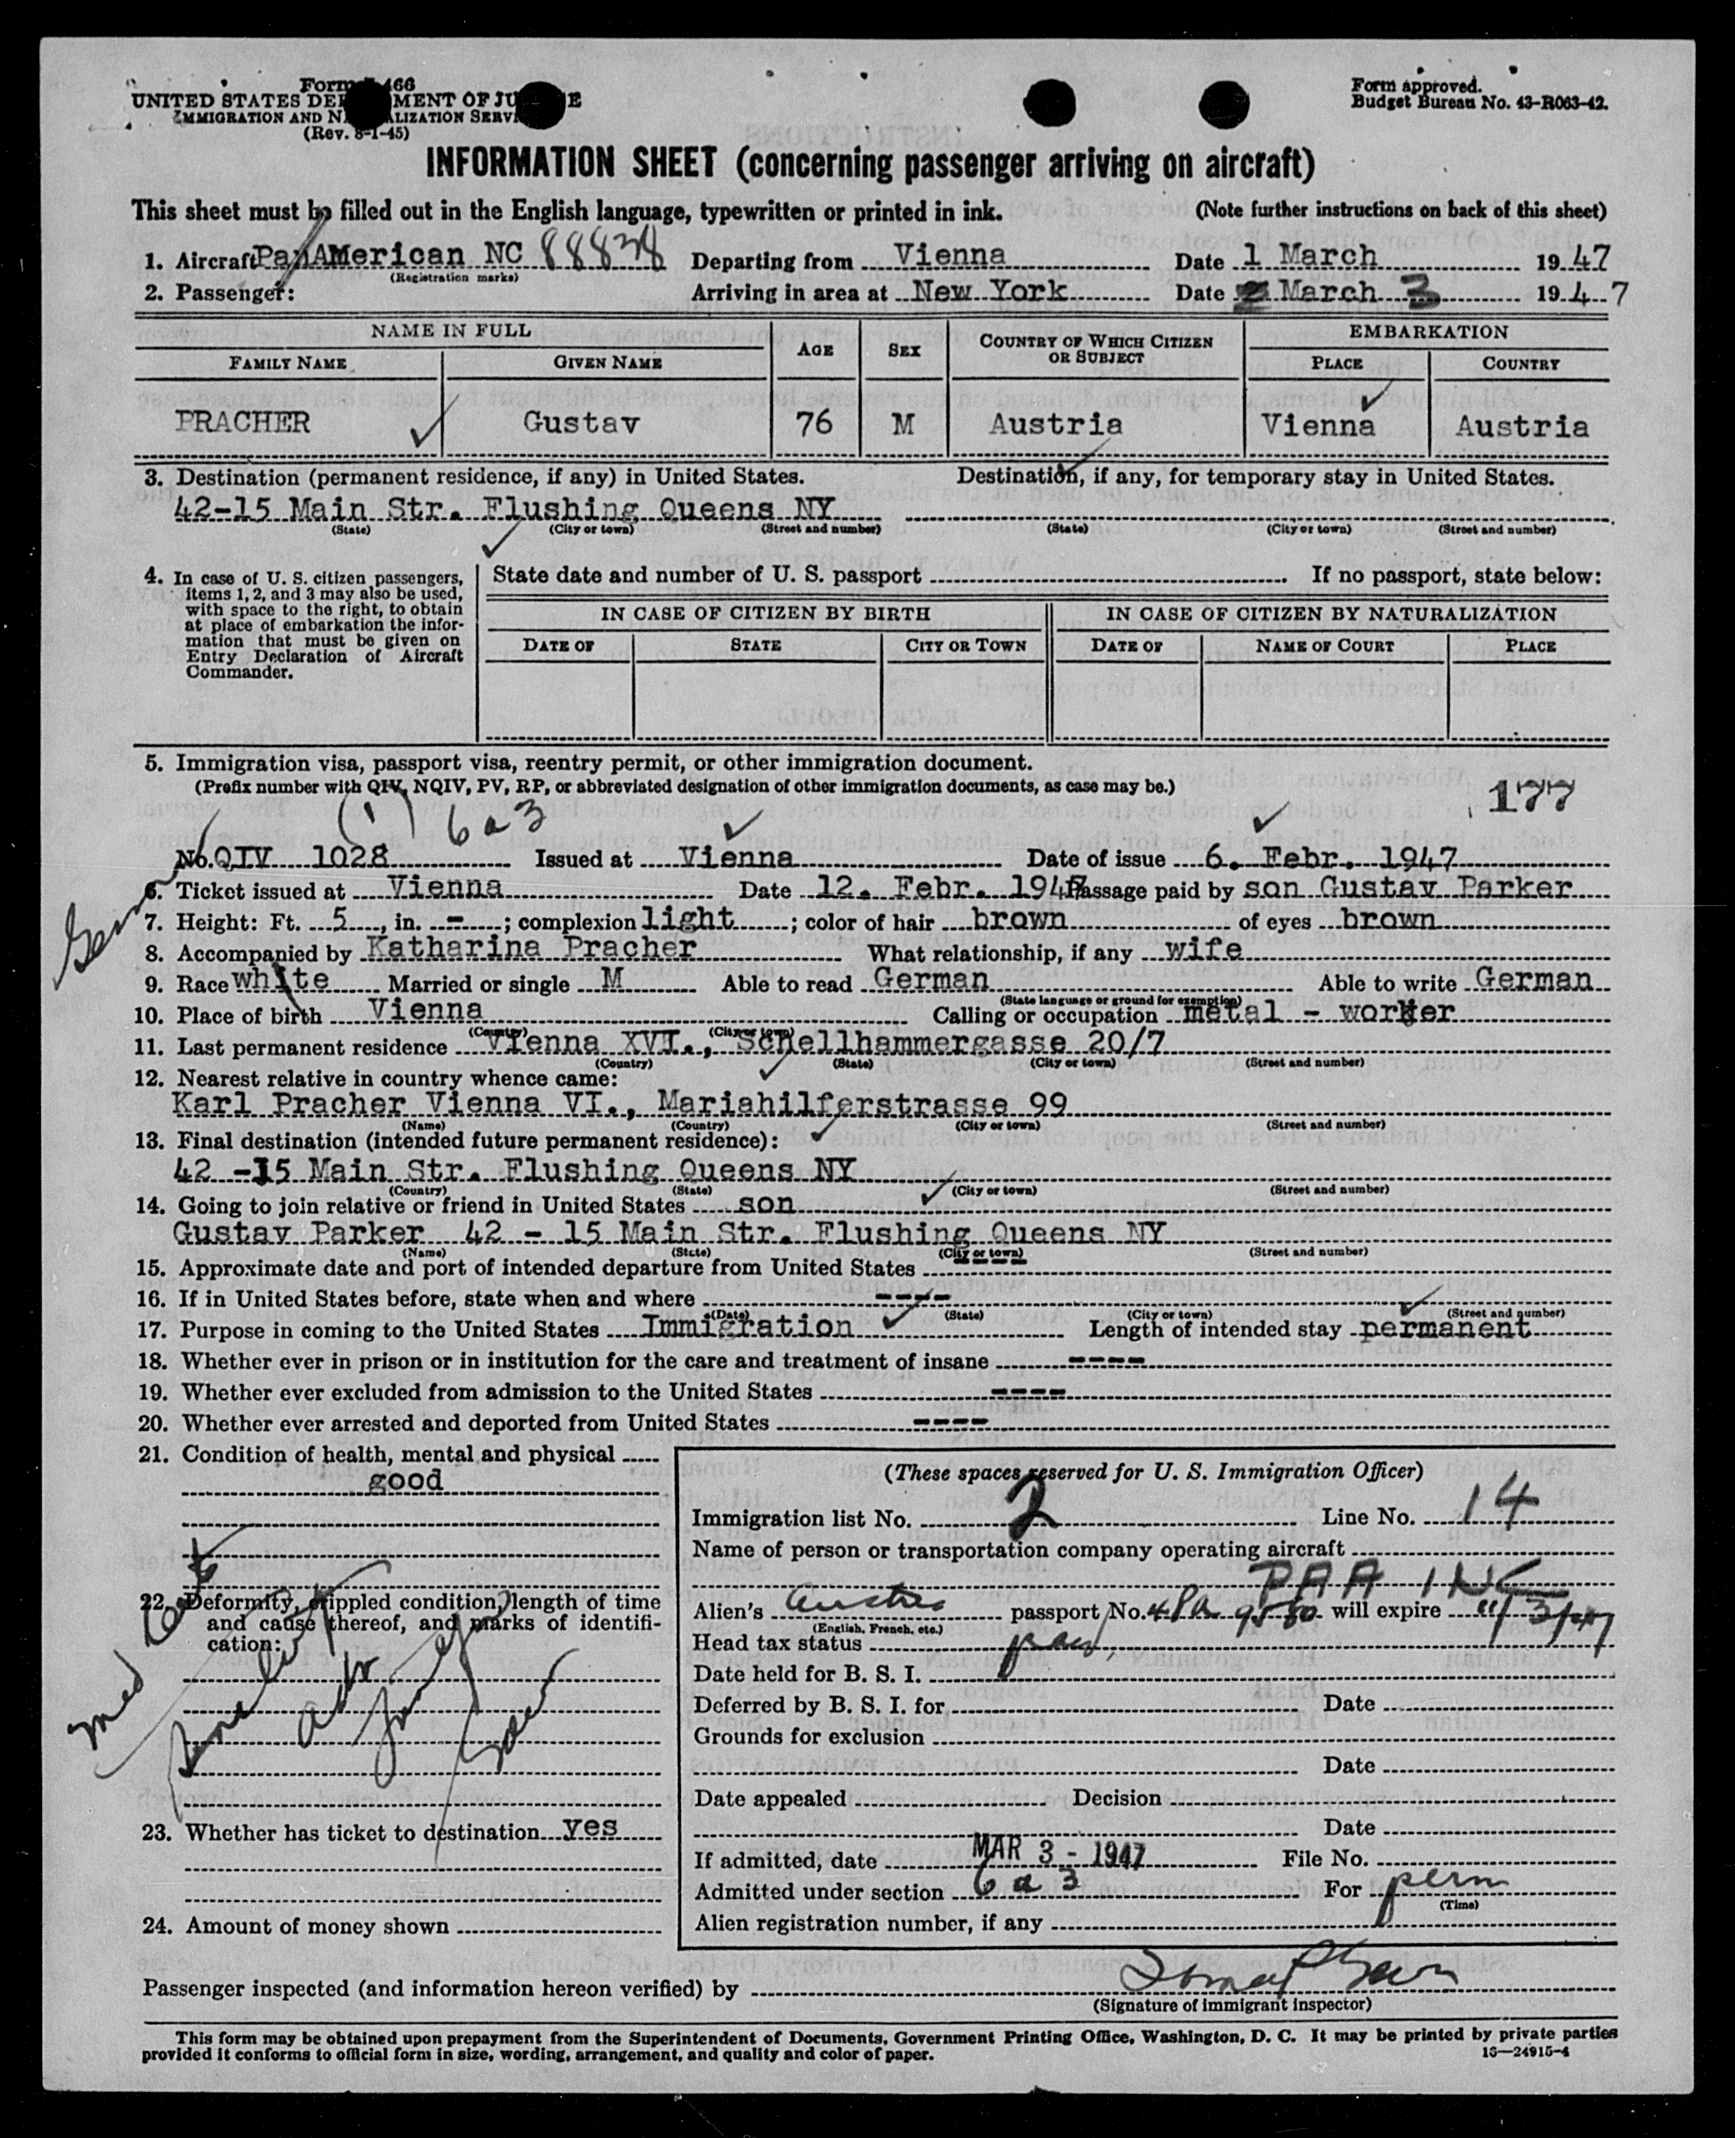 Form I-466
UNITED STATES DEPARTMENT OF JUSTICE
IMMIGRATION AND NATURALIZATION SERVICE
(Rev. 8-1-45)
Form approved.
Budget Bureau No. 43-R063-42.
INFORMATION SHEET (concerning passenger arriving on aircraft)
This sheet must be filled out in the English language, typewritten or printed in ink. (Note further instructions on back of this sheet)
1. Aircraft PanAMerican NC 88838 Departing from Vienna Date 1 March 1947
(Registration marks)
2. Passenger: Arriving in area at New York Date 2 March 3 1947
NAME IN FULL AGE SEX COUNTRY OF WHICH CITIZEN OR SUBJECT EMBARKATION
FAMILY NAME GIVEN NAME PLACE COUNTRY
PRACHER Gustav 76 M Austria Vienna Austria
3. Destination (permanent residence, if any) in United States. Destination, if any, for temporary stay in United States.
42-15 Main Str. Flushing Queens NY
(State) (City or town) (Street and number) (State) (City or town) (Street and number)
4. In case of U. S. citizen passengers, items 1, 2, and 3 may also be used, with space to the right, to obtain at place of embarkation the information that must be given on Entry Declaration of Aircraft Commander.
State date and number of U. S. passport If no passport, state below:
IN CASE OF CITIZEN BY BIRTH IN CASE OF CITIZEN BY NATURALIZATION
DATE OF STATE CITY OR TOWN DATE OF NAME OF COURT PLACE
5. Immigration visa, passport visa, reentry permit, or other immigration document.
(Prefix number with QIV, NQIV, PV, RP, or abbreviated designation of other immigration documents, as case may be.)
177
(1) 6 a 3
No. QIV 1028 Issued at Vienna Date of issue 6. Febr. 1947
6. Ticket issued at Vienna Date 12. Febr. 1947 Passage paid by son Gustav Parker
7. Height: Ft. 5, in. -; complexion light; color of hair brown of eyes brown
8. Accompanied by Katharina Pracher What relationship, if any wife
9. Race white Married or single M Able to read German Able to write German
(State language or ground for exemption)
10. Place of birth Vienna Calling or occupation metal - worker
(Country) (City or town)
11. Last permanent residence Vienna XVI., Schellhammergasse 20/7
(Country) (State) (City or town) (Street and number)
12. Nearest relative in country whence came:
Karl Pracher Vienna VI., Mariahilferstrasse 99
(Name) (Country) (City or town) (Street and number)
13. Final destination (intended future permanent residence):
42 -15 Main Str. Flushing Queens NY
(Country) (State) (City or town) (Street and number)
14. Going to join relative or friend in United States son
Gustav Parker 42 - 15 Main Str. Flushing Queens NY
(Name) (State) (City or town) (Street and number)
15. Approximate date and port of intended departure from United States ----
16. If in United States before, state when and where ----
(Date) (State) (City or town) (Street and number)
17. Purpose in coming to the United States Immigration Length of intended stay permanent
18. Whether ever in prison or in institution for the care and treatment of insane ----
19. Whether ever excluded from admission to the United States ----
20. Whether ever arrested and deported from United States ----
21. Condition of health, mental and physical
good
22. Deformity, crippled condition, length of time and cause thereof, and marks of identification:
Med Cert
23. Whether has ticket to destination yes
24. Amount of money shown
(These spaces reserved for U. S. Immigration Officer)
Immigration list No. 2 Line No. 14
Name of person or transportation company operating aircraft
PAA INC
Alien's passport No. will expire
(English, French, etc.)
Head tax status paid
Date held for B. S. I.
Deferred by B. S. I. for Date
Grounds for exclusion
Date
Date appealed Decision
Date
If admitted, date MAR 3 - 1947 File No.
Admitted under section 6 a 3 For perm
(Time)
Alien registration number, if any
Passenger inspected (and information hereon verified) by
(Signature of immigrant inspector)
This form may be obtained upon prepayment from the Superintendent of Documents, Government Printing Office, Washington, D. C. It may be printed by private parties
provided it conforms to official form in size, wording, arrangement, and quality and color of paper. 16—24915-4